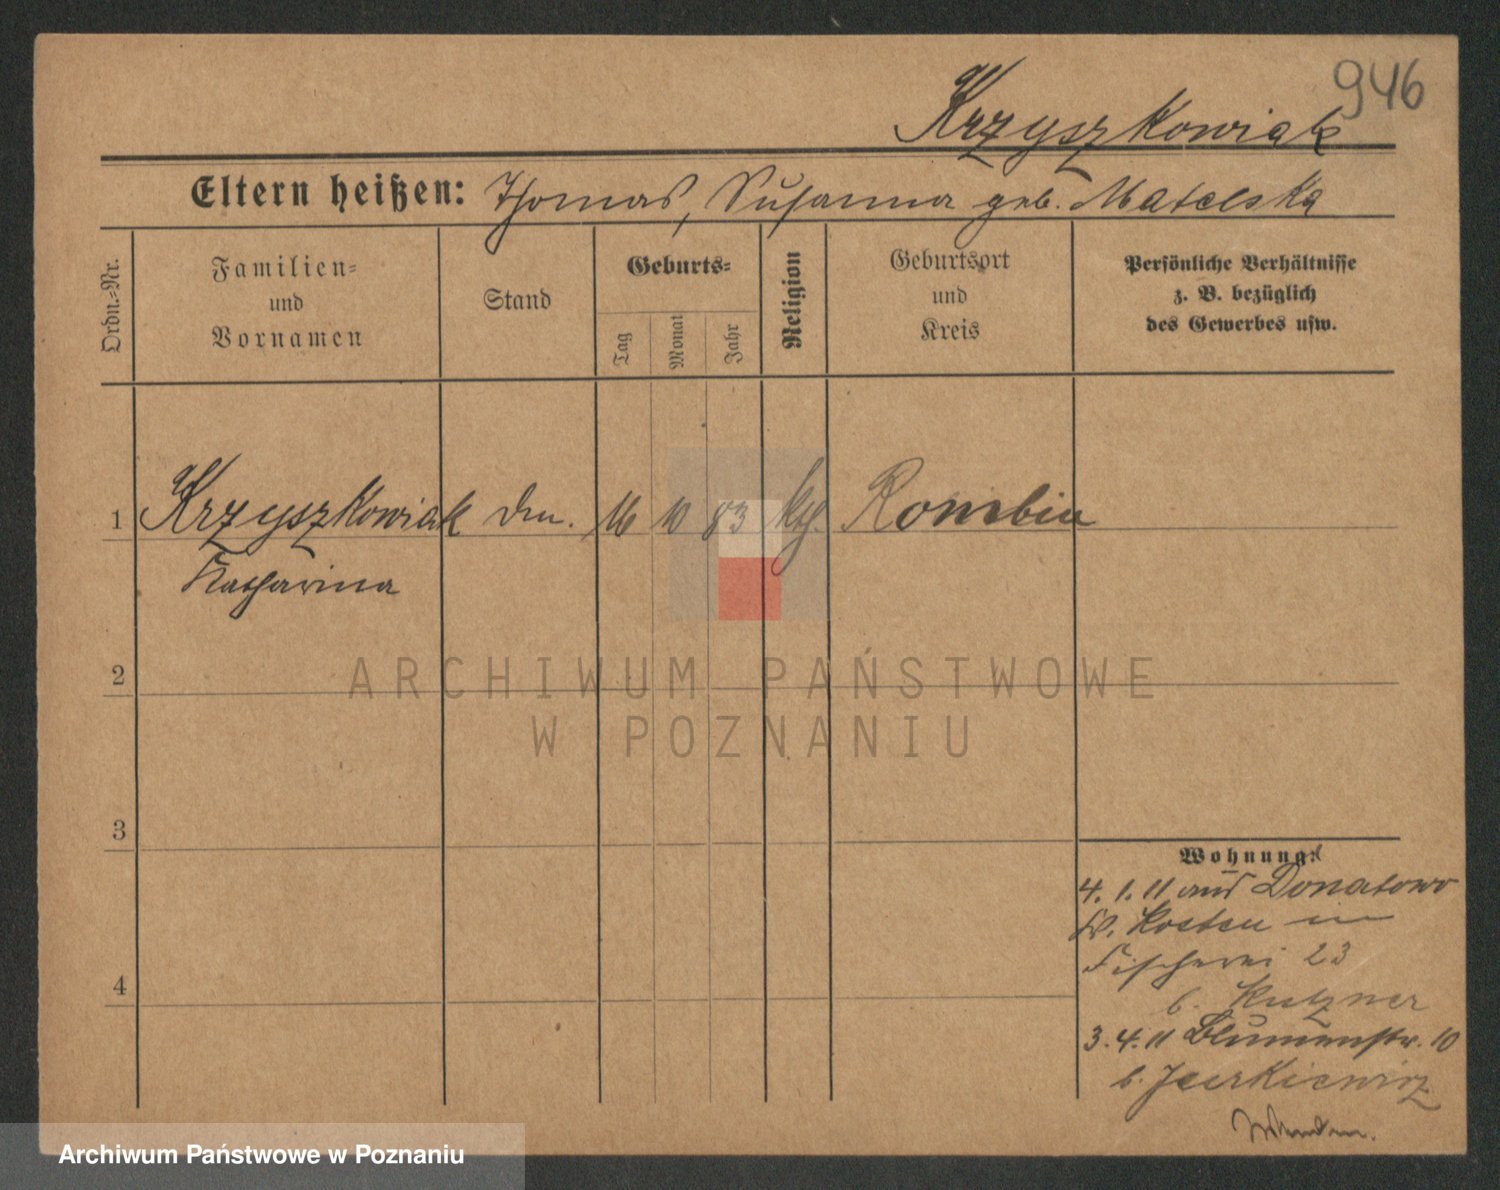 946
Krzyszkowiak
Eltern heißen: Thomas, Susanna geb. Matelska
Ordn.-Nr.
Familien-
und
Vornamen
Stand
Geburts-
Tag
Monat
Jahr
Religion
Geburtsort
und
Kreis
Persönliche Verhältnisse
z. B. bezüglich
des Gewerbes usw.
1 Krzyszkowiak 16 10 83 kth. Rombin
Katharina
2
3
4
Wohnung:
4. 1. 11 aus Donatowo
Kosten in
Fischerei 23
b. Kutzner
3. 4. 11 Blumenstr. 10
b.
ARCHIWUM PAŃSTWOWE
W POZNANIU
Archiwum Państwowe w Poznaniu